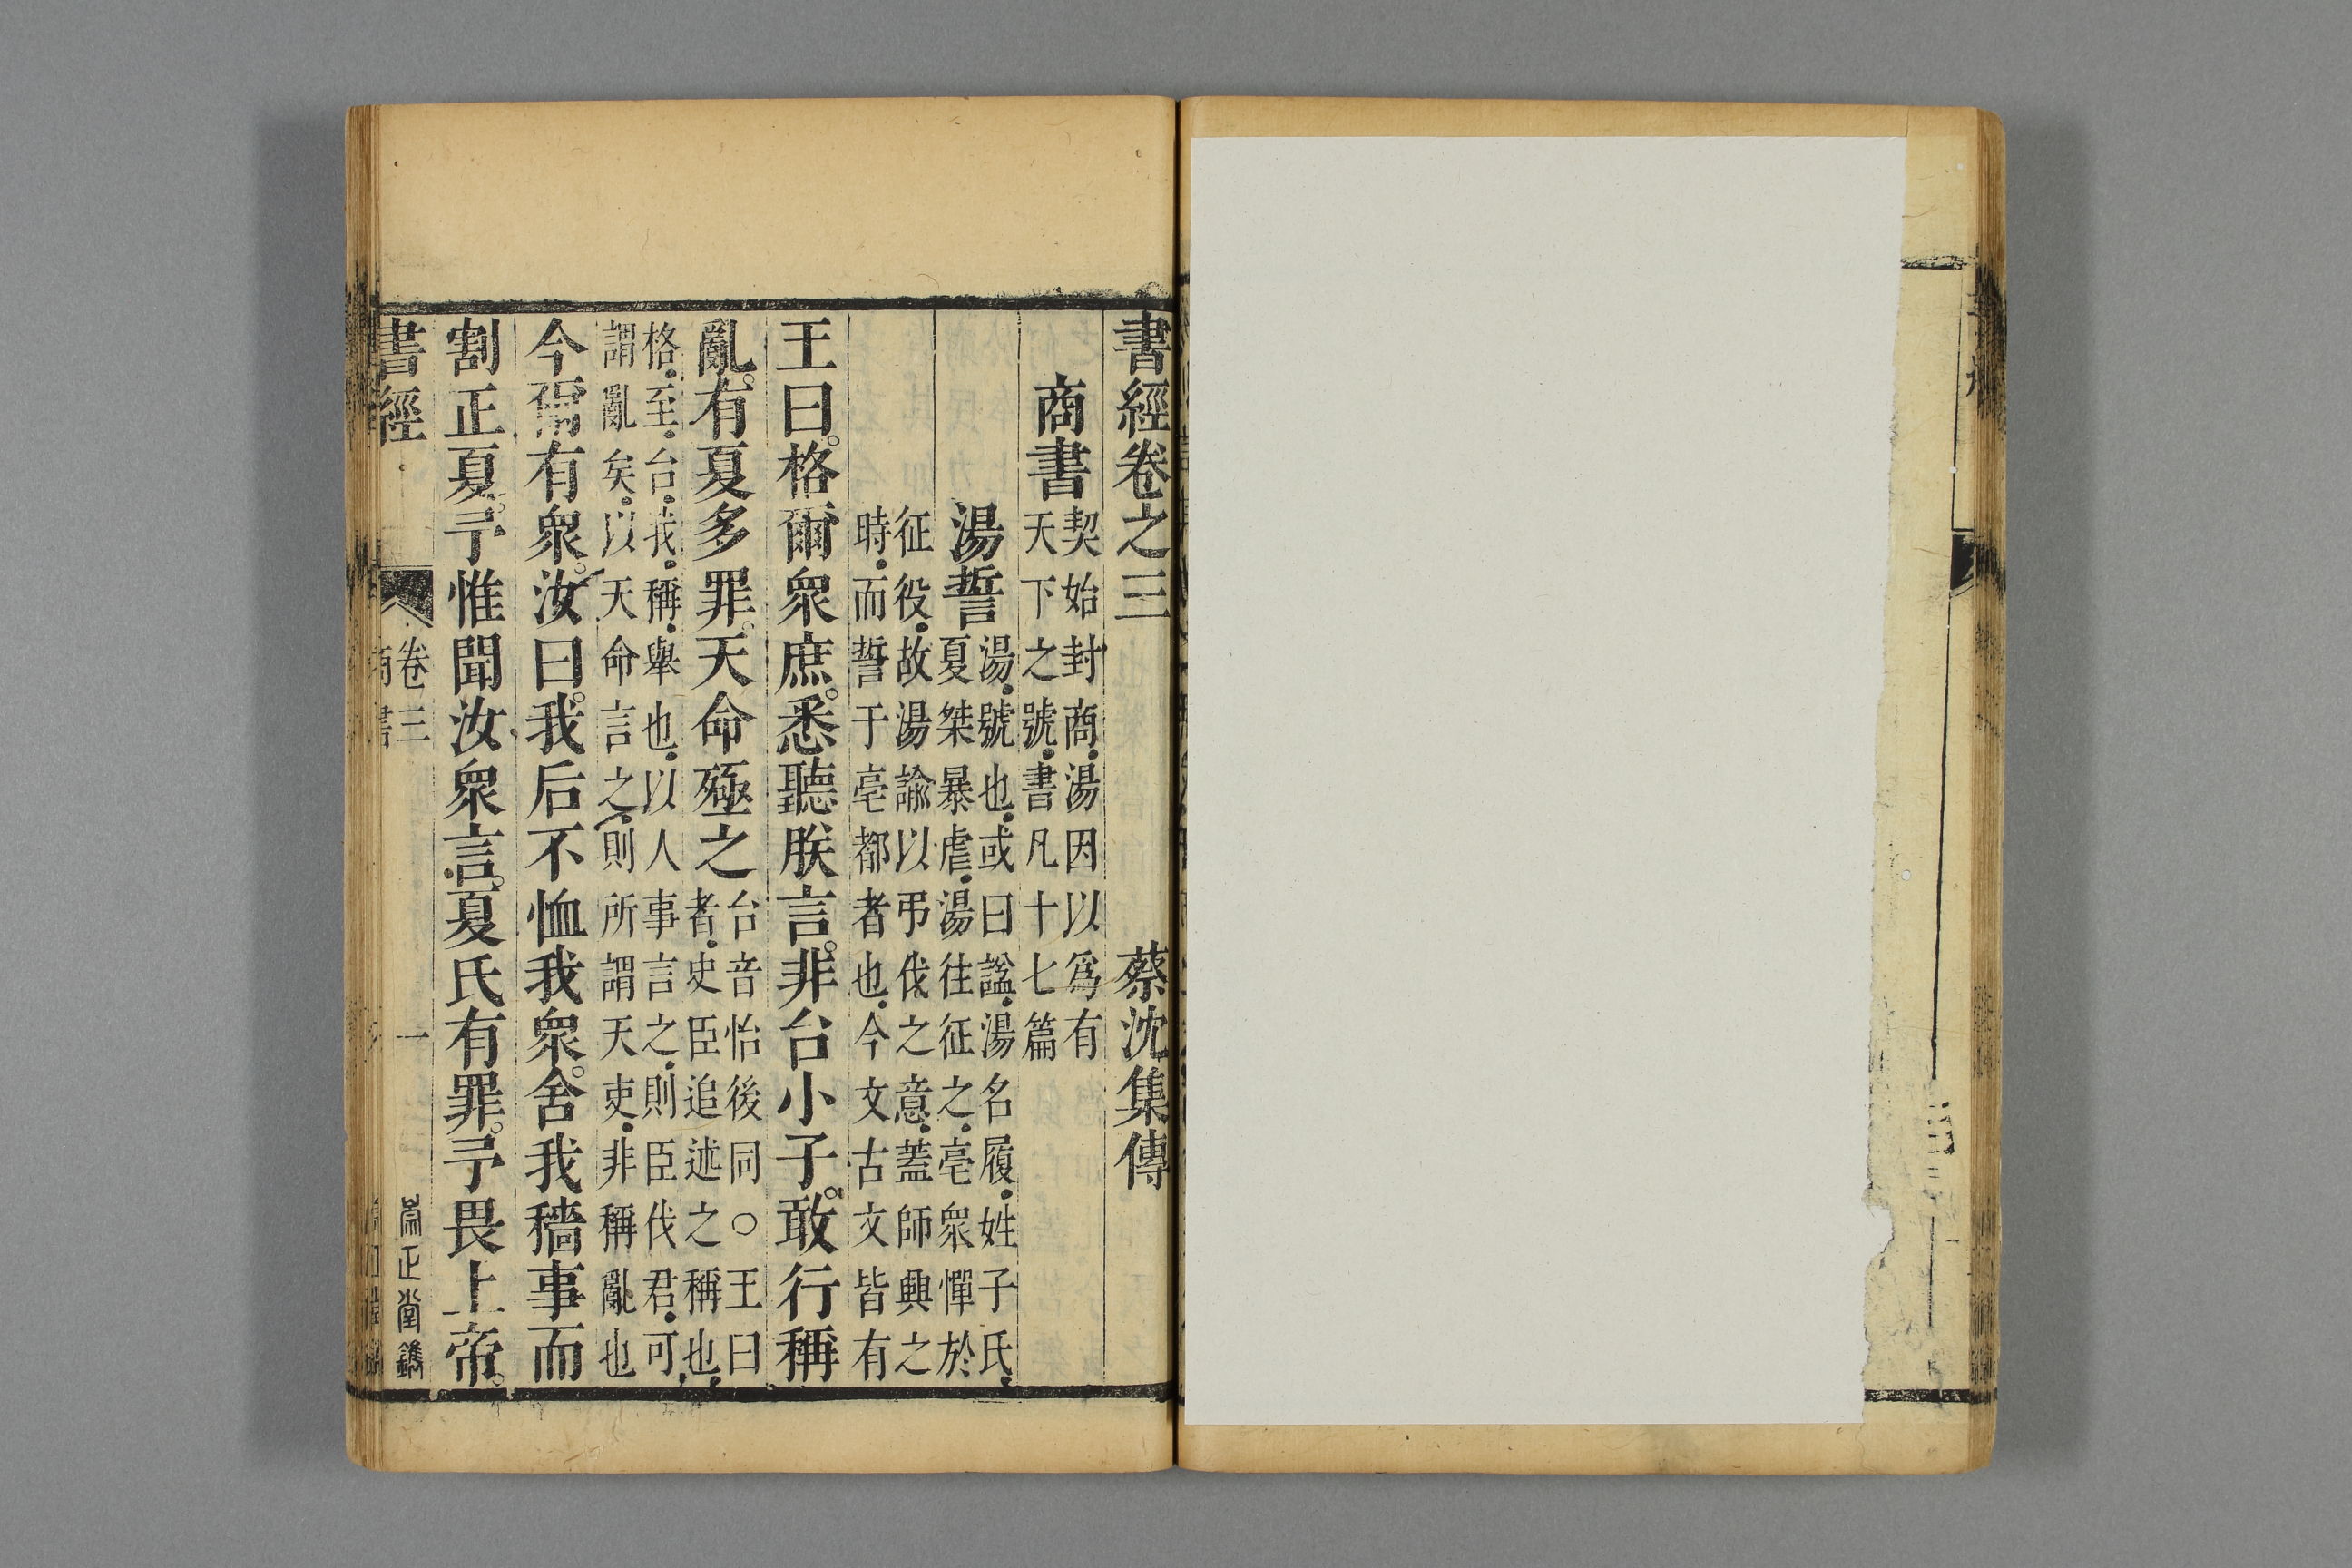 書經卷之三 蔡沈集傳
商書 契始封商湯因以爲有
天下之號書凡十七篇
湯誓 湯號也或曰諡湯名履姓子氏
夏桀暴虐湯往征之亳衆憚於
征役故湯諭以弔伐之意蓋師興之
時而誓于亳都者也今文古文皆有
王曰格爾衆庶悉聽朕言非台小子敢行稱
亂有夏多罪天命殛之 台音怡後同○王曰
者史臣追述之稱也
格至台我稱舉也以人事言之則臣伐君可
謂亂矣以天命言之則所謂天吏非稱亂也
今爾有衆汝曰我后不恤我衆舍我穡事而
割正夏予惟聞汝衆言夏氏有罪予畏上帝
書經 卷三 商書 一 崇正堂鐫